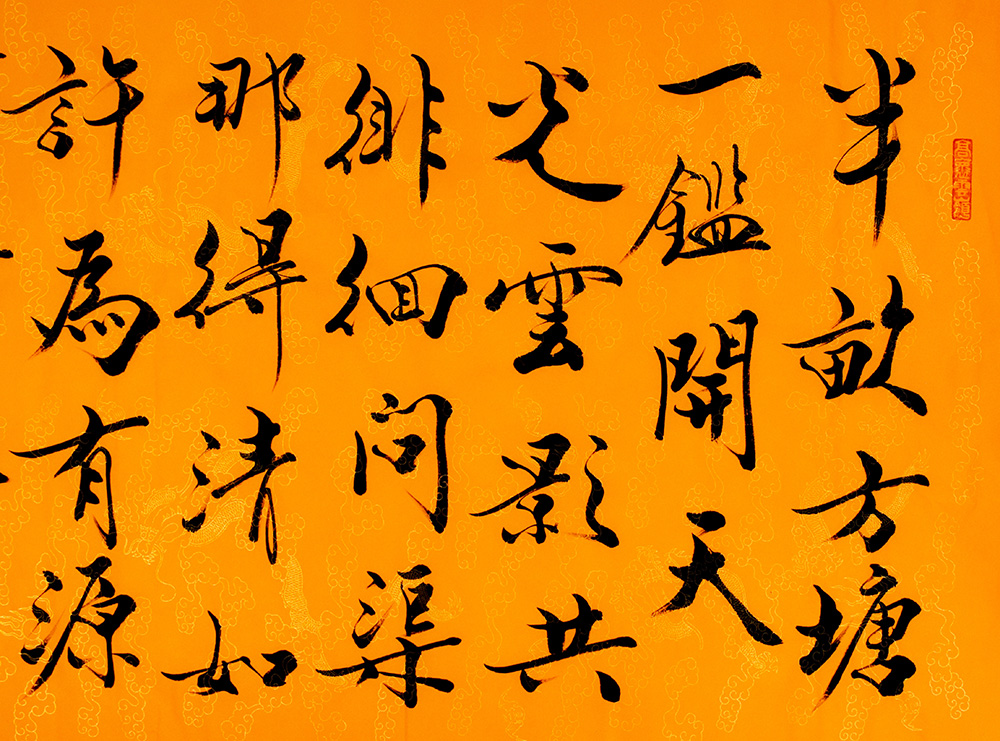 半畝方塘
一鑑開天
光雲影共
徘徊问渠
那得清如
許為有源